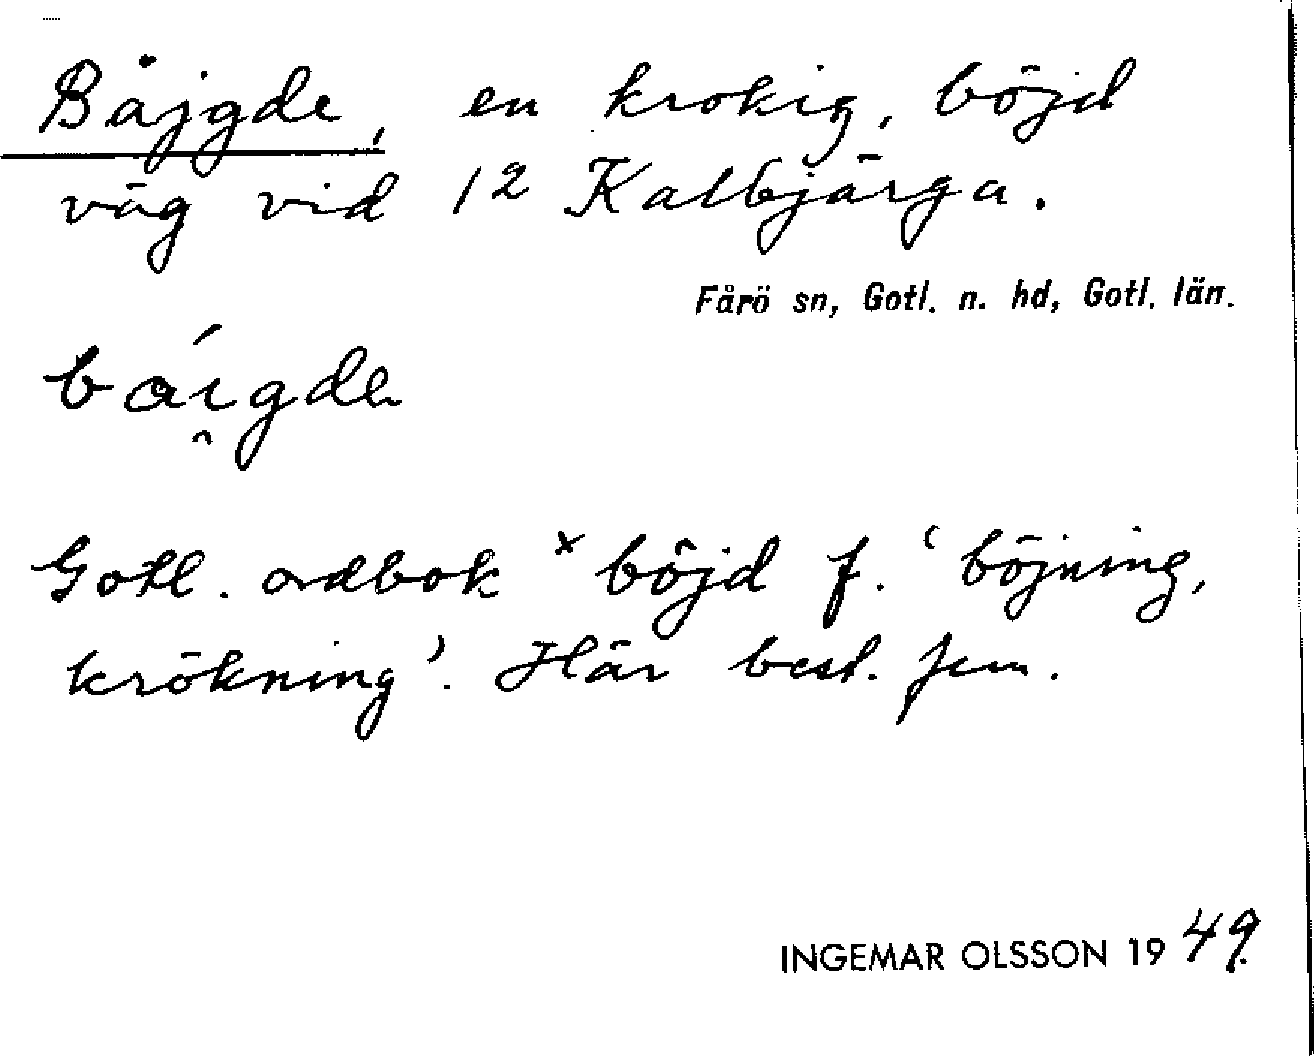 Båjgde, en krokig, böjd
väg vid 12 Kalbjärga.
Fårö sn, Gotl. n. hd, Gotl. län.
bái̯gdɐ
Gotl. ordbok ˣböjd f. ‘böjning,
krökning’. Här best. fem.
INGEMAR OLSSON 1949.